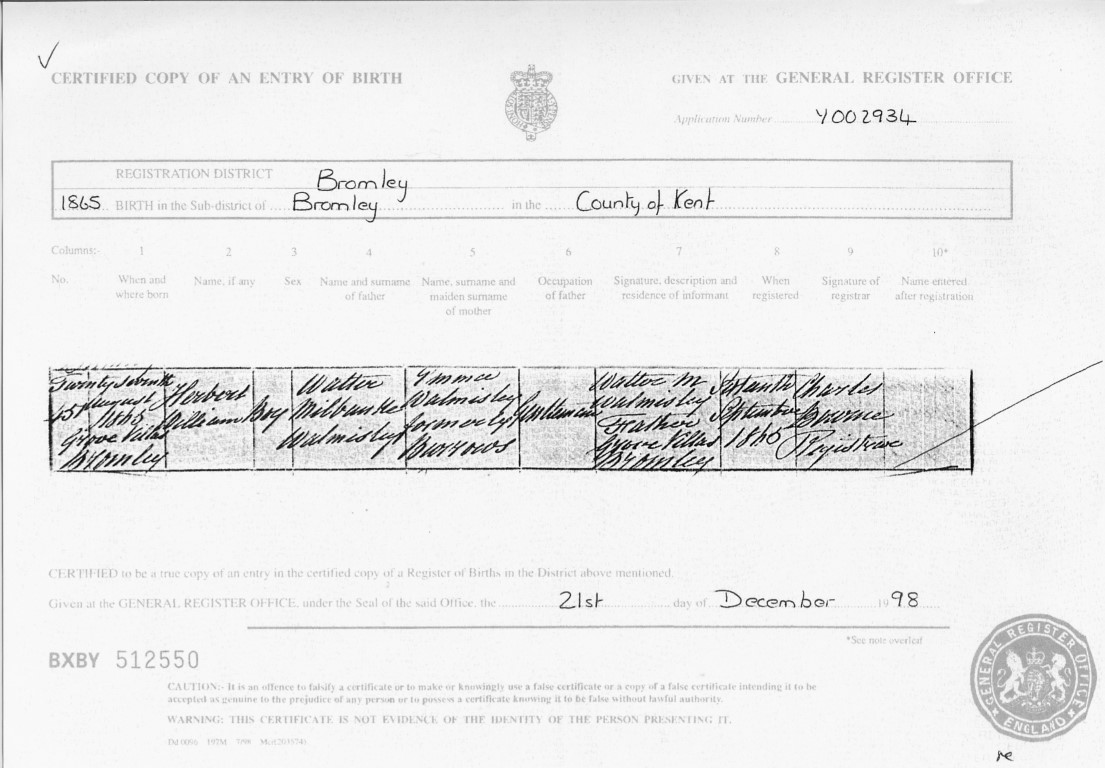 CERTIFIED COPY OF AN ENTRY OF BIRTH
GIVEN AT THE GENERAL REGISTER OFFICE
Application Number Y002934
REGISTRATION DISTRICT Bromley
1865 BIRTH in the Sub-district of Bromley in the County of Kent
Columns:- 1 2 3 4 5 6 7 8 9 10*
No. When and where born Name, if any Sex Name and surname of father Name, surname and maiden surname of mother Occupation of father Signature, description and residence of informant When registered Signature of registrar Name entered after registration
Twenty seventh August 1865 Grove Villas Bromley
Herbert William
Boy
Walter Milbanke Walmisley
Emma Walmisley formerly Burrows
Gentleman
Walter M Walmisley Father Grove Villas Bromley
September 1865
Charles Bourne Registrar
CERTIFIED to be a true copy of an entry in the certified copy of a Register of Births in the District above mentioned.
Given at the GENERAL REGISTER OFFICE, under the Seal of the said Office, the 21st day of December 1998
*See note overleaf
BXBY 512550
CAUTION:- It is an offence to falsify a certificate or to make or knowingly use a false certificate or a copy of a false certificate intending it to be
accepted as genuine to the prejudice of any person or to possess a certificate knowing it to be false without lawful authority.
WARNING: THIS CERTIFICATE IS NOT EVIDENCE OF THE IDENTITY OF THE PERSON PRESENTING IT.
GENERAL REGISTER OFFICE ENGLAND